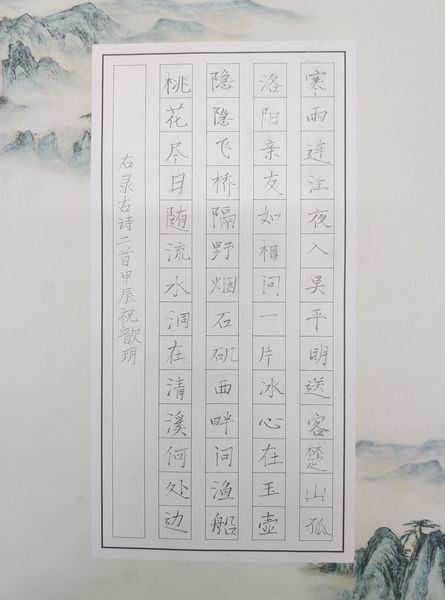 寒雨连江夜入吴平明送客楚山孤
洛阳亲友如相问一片冰心在玉壶
隐隐飞桥隔野烟石矶西畔问渔船
桃花尽日随流水洞在清溪何处边
右录古诗二首甲辰祝歆玥